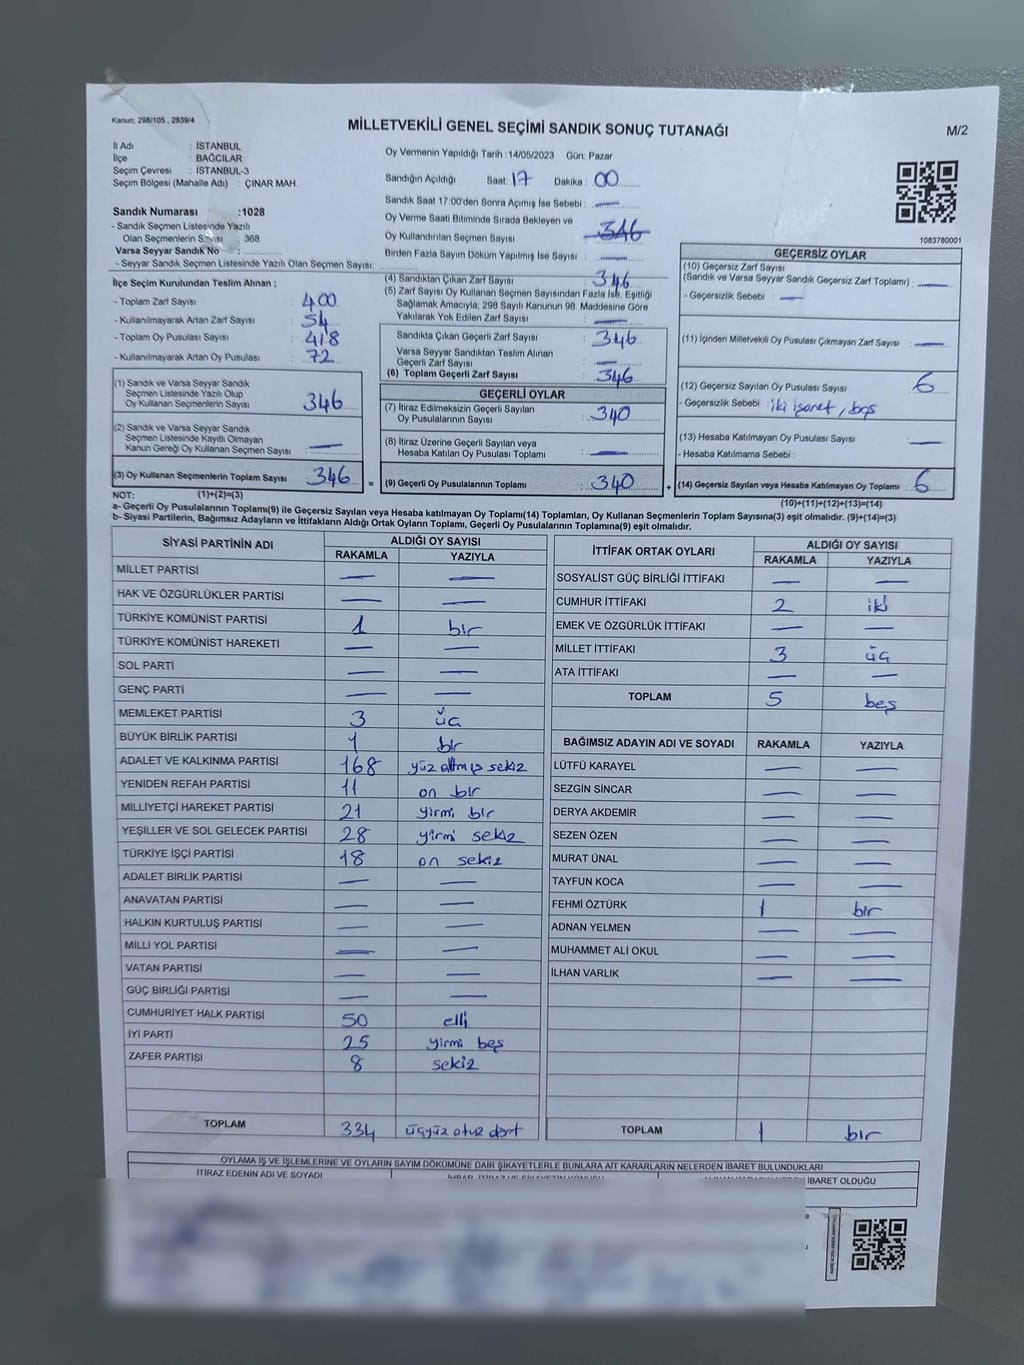 Kanun; 298/105 , 2839/4
MİLLETVEKİLİ GENEL SEÇİMİ SANDIK SONUÇ TUTANAĞI
M/2
İl Adı : İSTANBUL
İlçe : BAĞCILAR
Seçim Çevresi : İSTANBUL-3
Seçim Bölgesi (Mahalle Adı) : ÇINAR MAH.
Sandık Numarası :1028
- Sandık Seçmen Listesinde Yazılı
Olan Seçmenlerin Sayısı : 368
Varsa Seyyar Sandık No :
- Seyyar Sandık Seçmen Listesinde Yazılı Olan Seçmen Sayısı:
İlçe Seçim Kurulundan Teslim Alınan ;
- Toplam Zarf Sayısı : 400
- Kullanılmayarak Artan Zarf Sayısı : 54
- Toplam Oy Pusulası Sayısı : 418
- Kullanılmayarak Artan Oy Pusulası : 72
(1) Sandık ve Varsa Seyyar Sandık
Seçmen Listesinde Yazılı Olup
Oy Kullanan Seçmenlerin Sayısı : 346
(2) Sandık ve Varsa Seyyar Sandık
Seçmen Listesinde Kayıtlı Olmayan
Kanun Gereği Oy Kullanan Seçmen Sayısı : —
(3) Oy Kullanan Seçmenlerin Toplam Sayısı : 346
Oy Vermenin Yapıldığı Tarih : 14/05/2023 Gün: Pazar
Sandığın Açıldığı Saat: 17 Dakika : 00
Sandık Saat 17.00'den Sonra Açımış İse Sebebi : —
Oy Verme Saati Bitiminde Sırada Bekleyen ve
Oy Kullandırılan Seçmen Sayısı : 346
Birden Fazla Sayım Döküm Yapılmış İse Sayısı : —
(4) Sandıktan Çıkan Zarf Sayısı : 346
(5) Zarf Sayısı Oy Kullanan Seçmen Sayısından Fazla İse, Eşitliği
Sağlamak Amacıyla; 298 Sayılı Kanunun 98. Maddesine Göre
Yakılarak Yok Edilen Zarf Sayısı : —
Sandıkta Çıkan Geçerli Zarf Sayısı : 346
Varsa Seyyar Sandıktan Teslim Alınan
Geçerli Zarf Sayısı : —
(6) Toplam Geçerli Zarf Sayısı : 346
GEÇERLİ OYLAR
(7) İtiraz Edilmeksizin Geçerli Sayılan
Oy Pusulalarının Sayısı : 340
(8) İtiraz Üzerine Geçerli Sayılan veya
Hesaba Katılan Oy Pusulası Toplamı : —
= (9) Geçerli Oy Pusulalarının Toplamı : 340
1083780001
GEÇERSİZ OYLAR
(10) Geçersiz Zarf Sayısı
(Sandık ve Varsa Seyyar Sandık Geçersiz Zarf Toplamı) : —
- Geçersizlik Sebebi : —
(11) İçinden Milletvekili Oy Pusulası Çıkmayan Zarf Sayısı : —
(12) Geçersiz Sayılan Oy Pusulası Sayısı : 6
- Geçersizlik Sebebi : iki işaret, boş
(13) Hesaba Katılmayan Oy Pusulası Sayısı : —
- Hesaba Katılmama Sebebi :
+ (14) Geçersiz Sayılan veya Hesaba Katılmayan Oy Toplamı : 6
NOT: (1)+(2)=(3) (10)+(11)+(12)+(13)=(14)
a- Geçerli Oy Pusulalarının Toplamı(9) ile Geçersiz Sayılan veya Hesaba katılmayan Oy Toplamı(14) Toplamları, Oy Kullanan Seçmenlerin Toplam Sayısına(3) eşit olmalıdır. (9)+(14)=(3)
b- Siyasi Partilerin, Bağımsız Adayların ve İttifakların Aldığı Ortak Oyların Toplamı, Geçerli Oy Pusulalarının Toplamına(9) eşit olmalıdır.
SİYASİ PARTİNİN ADI ALDIĞI OY SAYISI
RAKAMLA YAZIYLA
MİLLET PARTİSİ — —
HAK VE ÖZGÜRLÜKLER PARTİSİ — —
TÜRKİYE KOMÜNİST PARTİSİ 1 bir
TÜRKİYE KOMÜNİST HAREKETİ — —
SOL PARTİ — —
GENÇ PARTİ — —
MEMLEKET PARTİSİ 3 üç
BÜYÜK BİRLİK PARTİSİ 1 bir
ADALET VE KALKINMA PARTİSİ 168 yüz altmış sekiz
YENİDEN REFAH PARTİSİ 11 on bir
MİLLİYETÇİ HAREKET PARTİSİ 21 yirmi bir
YEŞİLLER VE SOL GELECEK PARTİSİ 28 yirmi sekiz
TÜRKİYE İŞÇİ PARTİSİ 18 on sekiz
ADALET BİRLİK PARTİSİ — —
ANAVATAN PARTİSİ — —
HALKIN KURTULUŞ PARTİSİ — —
MİLLİ YOL PARTİSİ — —
VATAN PARTİSİ — —
GÜÇ BİRLİĞİ PARTİSİ — —
CUMHURİYET HALK PARTİSİ 50 elli
İYİ PARTİ 25 yirmi beş
ZAFER PARTİSİ 8 sekiz
TOPLAM 334 üçyüz otuz dört
İTTİFAK ORTAK OYLARI ALDIĞI OY SAYISI
RAKAMLA YAZIYLA
SOSYALİST GÜÇ BİRLİĞİ İTTİFAKI — —
CUMHUR İTTİFAKI 2 iki
EMEK VE ÖZGÜRLÜK İTTİFAKI — —
MİLLET İTTİFAKI 3 üç
ATA İTTİFAKI — —
TOPLAM 5 beş
BAĞIMSIZ ADAYIN ADI VE SOYADI RAKAMLA YAZIYLA
LÜTFÜ KARAYEL — —
SEZGİN SİNCAR — —
DERYA AKDEMİR — —
SEZEN ÖZEN — —
MURAT ÜNAL — —
TAYFUN KOCA — —
FEHMİ ÖZTÜRK 1 bir
ADNAN YELMEN — —
MUHAMMET ALİ OKUL — —
İLHAN VARLIK — —
TOPLAM 1 bir
OYLAMA İŞ VE İŞLEMLERİNE VE OYLARIN SAYIM DÖKÜMÜNE DAİR ŞİKAYETLERLE BUNLARA AİT KARARLARIN NELERDEN İBARET BULUNDUKLARI
İTİRAZ EDENİN ADI VE SOYADI
İBARET OLDUĞU